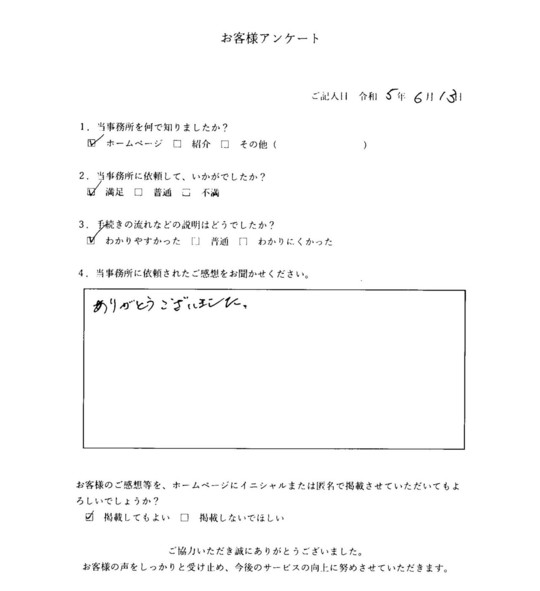 お客様アンケート
ご記入日 令和 5年 6月 13日
1. 当事務所を何で知りましたか?
☑ ホームページ □ 紹介 □ その他 ( )
2. 当事務所に依頼して、いかがでしたか?
☑ 満足 □ 普通 □ 不満
3. 手続きの流れなどの説明はどうでしたか?
☑ わかりやすかった □ 普通 □ わかりにくかった
4. 当事務所に依頼されたご感想をお聞かせください。
ありがとうございました。
お客様のご感想等を、ホームページにイニシャルまたは匿名で掲載させていただいてもよ
ろしいでしょうか?
☑ 掲載してもよい □ 掲載しないでほしい
ご協力いただき誠にありがとうございました。
お客様の声をしっかりと受け止め、今後のサービスの向上に努めさせていただきます。